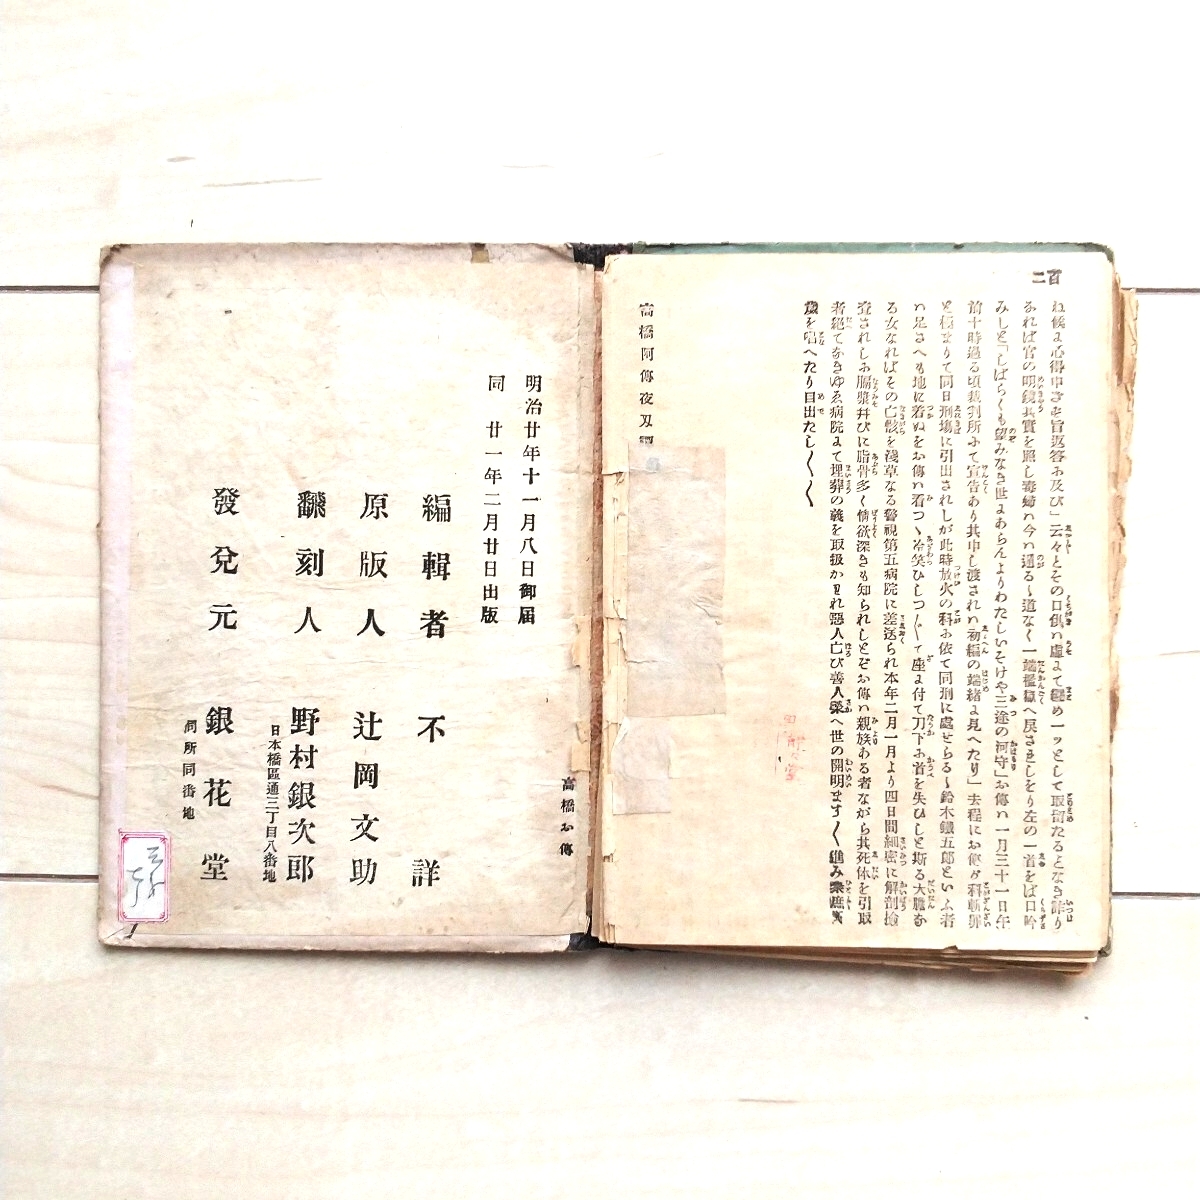 百二
ね候よ心得申さゞる旨返答お及び」云々とその口供ハ虚よて
あれば官の明鏡其實を照し毒婦ハ今ハ遁るゝ道なく一端檻獄へ戻さましをり左の一首をば口吟
みしと「しばらくも望みなき世よあらんよりわたしいそけや三途の河守」お傳ハ一月三十一日午
前十時過る頃裁判所ふて宣告あり其申し渡されハ初編の端緒よ見へたり」去程にお傳が
と極まりて同日刑塲に引出されしが此時放火の科お依て同刑に處せらるゝ鈴木鐵五郎といふ者
ハ足さへも地に着ぬをお傳ハ着つゝ冷笑ひしつゝ座よ付て刀下お首を失ひしと斯る大膽な
る女なればその亡骸を淺草なる警視第五病院に差送られ本年二月一日より四日間細密に解剖檢
査されしお腦漿并びに脂骨多く情欲深きも知られしとぞお傳ハ親族ある者ながら其死体を引取
者絶てなきゆゑ病院よて埋葬の義を取扱かはれ惡人亡び善人榮へ世の開明ます〱進み衆庶萬
歳を唱へたり目出たし〱〱
高橋阿傳夜刄
高橋お傳
明治廿年十一月八日御届
同 廿一年二月廿日出版
編輯者 不詳
原版人 辻岡文助
翻刻人 野村銀次郎
日本橋區通三丁目八番地
發兌元 銀花堂
同所同番地